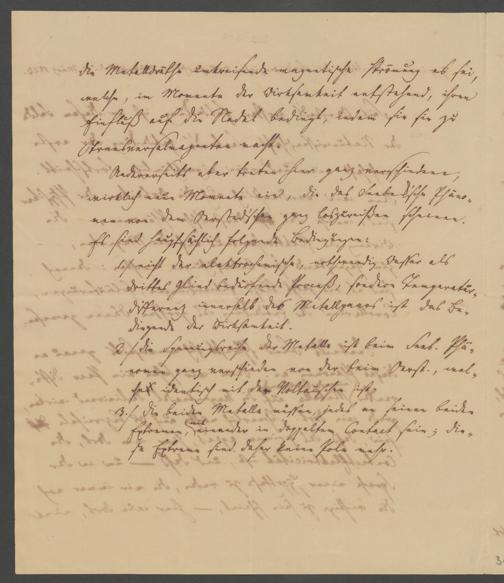 die Metalldräthe umkreisende magnetische Strömung es sei,
welche, im Momente der Wirksamkeit entstehend, ihren
Einfluß auf die Nadel bedingt, indem sie sie zu
Transversalmagneten macht.
Andererseits aber treten hier ganz verschiedene,
wirklich neue Momente ein, die das Seebecksche Phäno-
men von dem Oerstedschen ganz loszureißen scheinen.
Es sind hauptsächlich folgende Bedingungen:
1./ nicht der elektrochemische, nothwendig Wasser als
drittes Glied bedürfende Proceß, sondern Temperatur-
differenz innerhalb des Metallganzen ist das Be-
dingende der Wirksamkeit.
2./ die Spannungsreihe der Metalle ist beim Seeb. Phä-
nomen ganz verschieden von der beim Oerst., wel-
che identisch mit der Voltaischen ist.
3./ die beiden Metalle müssen, jedes an seinen beiden
Extremen, mit einander in doppeltem Contact sein; die-
se Extreme sind daher keine Pole mehr.